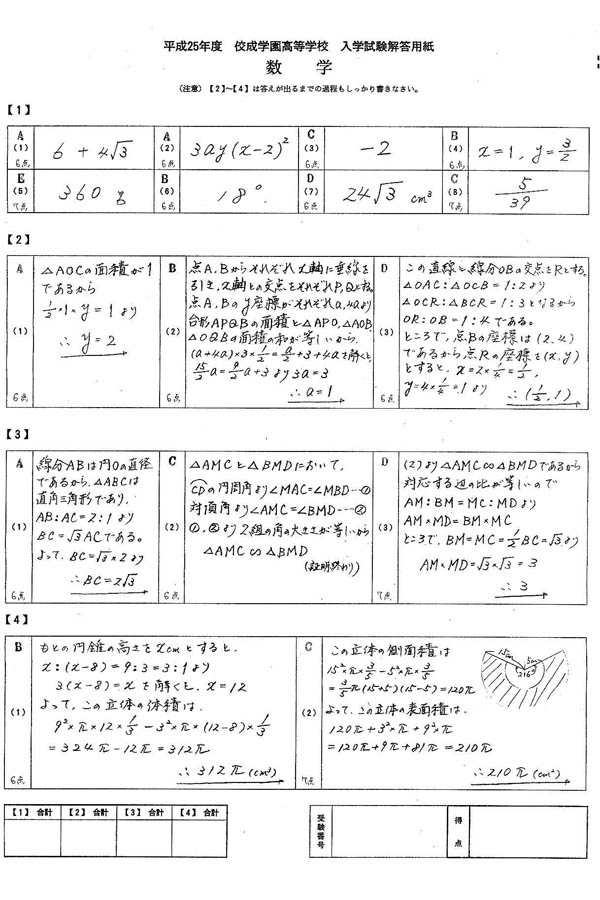 平成25年度 佼成学園高等学校 入学試験解答用紙
数 学
(注意)【2】~【4】は答えが出るまでの過程もしっかり書きなさい。
【1】
A (1) 6点 6 + 4√3
A (2) 6点 3ay(x-2)²
C (3) 6点 -2
B (4) 6点 x=1, y=3/2
E (5) 7点 360 g
B (6) 6点 18°
D (7) 6点 24√3 cm³
C (8) 7点 5/39
【2】
A (1) 6点
△AOCの面積が1
であるから
1/2×1×y=1より
∴ y=2
B (2) 6点
点A,Bからそれぞれx軸に垂線を
引き,x軸との交点をそれぞれP,Qとする。
点A,Bのy座標がそれぞれa,4aより
台形APQBの面積と△APO,△AOB,
△OQBの面積の和が等しいから,
(a+4a)×3×1/2=a/2+3+4aを解くと,
15/2a=9/2a+3より3a=3
∴a=1
D (3) 6点
この直線と線分OBの交点をRとする。
△OAC:△OCB=1:2より
△OCR:△BCR=1:3となるから
OR:OB=1:4である。
ところで,点Bの座標は(2,4)
であるから,点Rの座標を(x,y)
とすると,x=2×1/4=1/2,
y=4×1/4=1より
∴(1/2,1)
【3】
A (1) 6点
線分ABは円Oの直径
であるから,△ABCは
直角三角形であり,
AB:AC=2:1より
BC=√3ACである。
よって,BC=√3×2より
∴BC=2√3
C (2) 6点
△AMCと△BMDにおいて,
CDの円周角より∠MAC=∠MBD…①
対頂角より∠AMC=∠BMD…②
①,②より2組の角の大きさが等しいから
△AMC∽△BMD
(証明終わり)
D (3) 7点
(2)より△AMC∽△BMDであるから
対応する辺の比が等しいので
AM:BM=MC:MDより
AM×MD=BM×MC
ところで,BM=MC=1/2BC=√3より
AM×MD=√3×√3=3
∴3
【4】
B (1) 6点
もとの円錐の高さをxcmとすると,
x:(x-8)=9:3=3:1より
3(x-8)=xを解くと,x=12
よって,この立体の体積は,
9²×π×12×1/3-3²×π×(12-8)×1/3
=324π-12π=312π
∴312π(cm³)
C (2) 7点
この立体の側面積は
15²×π×3/5-5²×π×3/5
=3/5π(15+5)(15-5)=120π
よって,この立体の表面積は,
120π+3²×π+9²×π
=120π+9π+81π=210π
∴210π(cm²)
15cm 5cm
216°
【1】合計 【2】合計 【3】合計 【4】合計
受験番号
得点